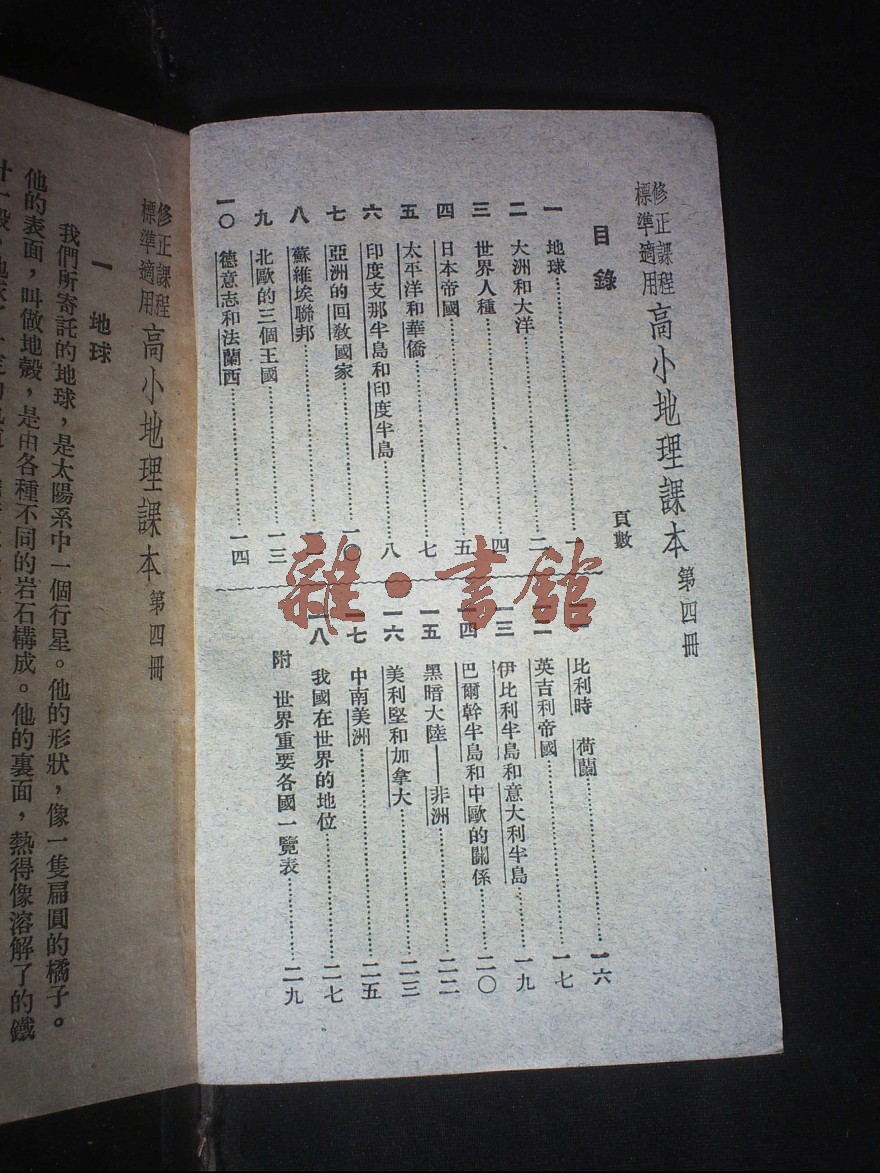 修正課程
標準適用
高小地理課本 第四冊
目錄
頁數
一 地球 一
二 大洲和大洋 二
三 世界人種 四
四 日本帝國 五
五 太平洋和華僑 七
六 印度支那半島和印度半島 八
七 亞洲的回教國家 一〇
八 蘇維埃聯邦
九 北歐的三個王國 一三
一〇 德意志和法蘭西 一四
比利時 荷蘭 一六
英吉利帝國 一七
一三 伊比利半島和意大利半島 一九
一四 巴爾幹半島和中歐的關係 二〇
一五 黑暗大陸——非洲 二二
一六 美利堅和加拿大 二三
一七 中南美洲 二五
一八 我國在世界的地位 二七
附 世界重要各國一覽表 二九
雜·書館
修正課程
標準適用
高小地理課本 第四冊
一 地球
我們所寄託的地球，是太陽系中一個行星。他的形狀，像一隻扁圓的橘子。
他的表面，叫做地殼，是由各種不同的岩石構成。他的裏面，熱得像溶解了的鐵